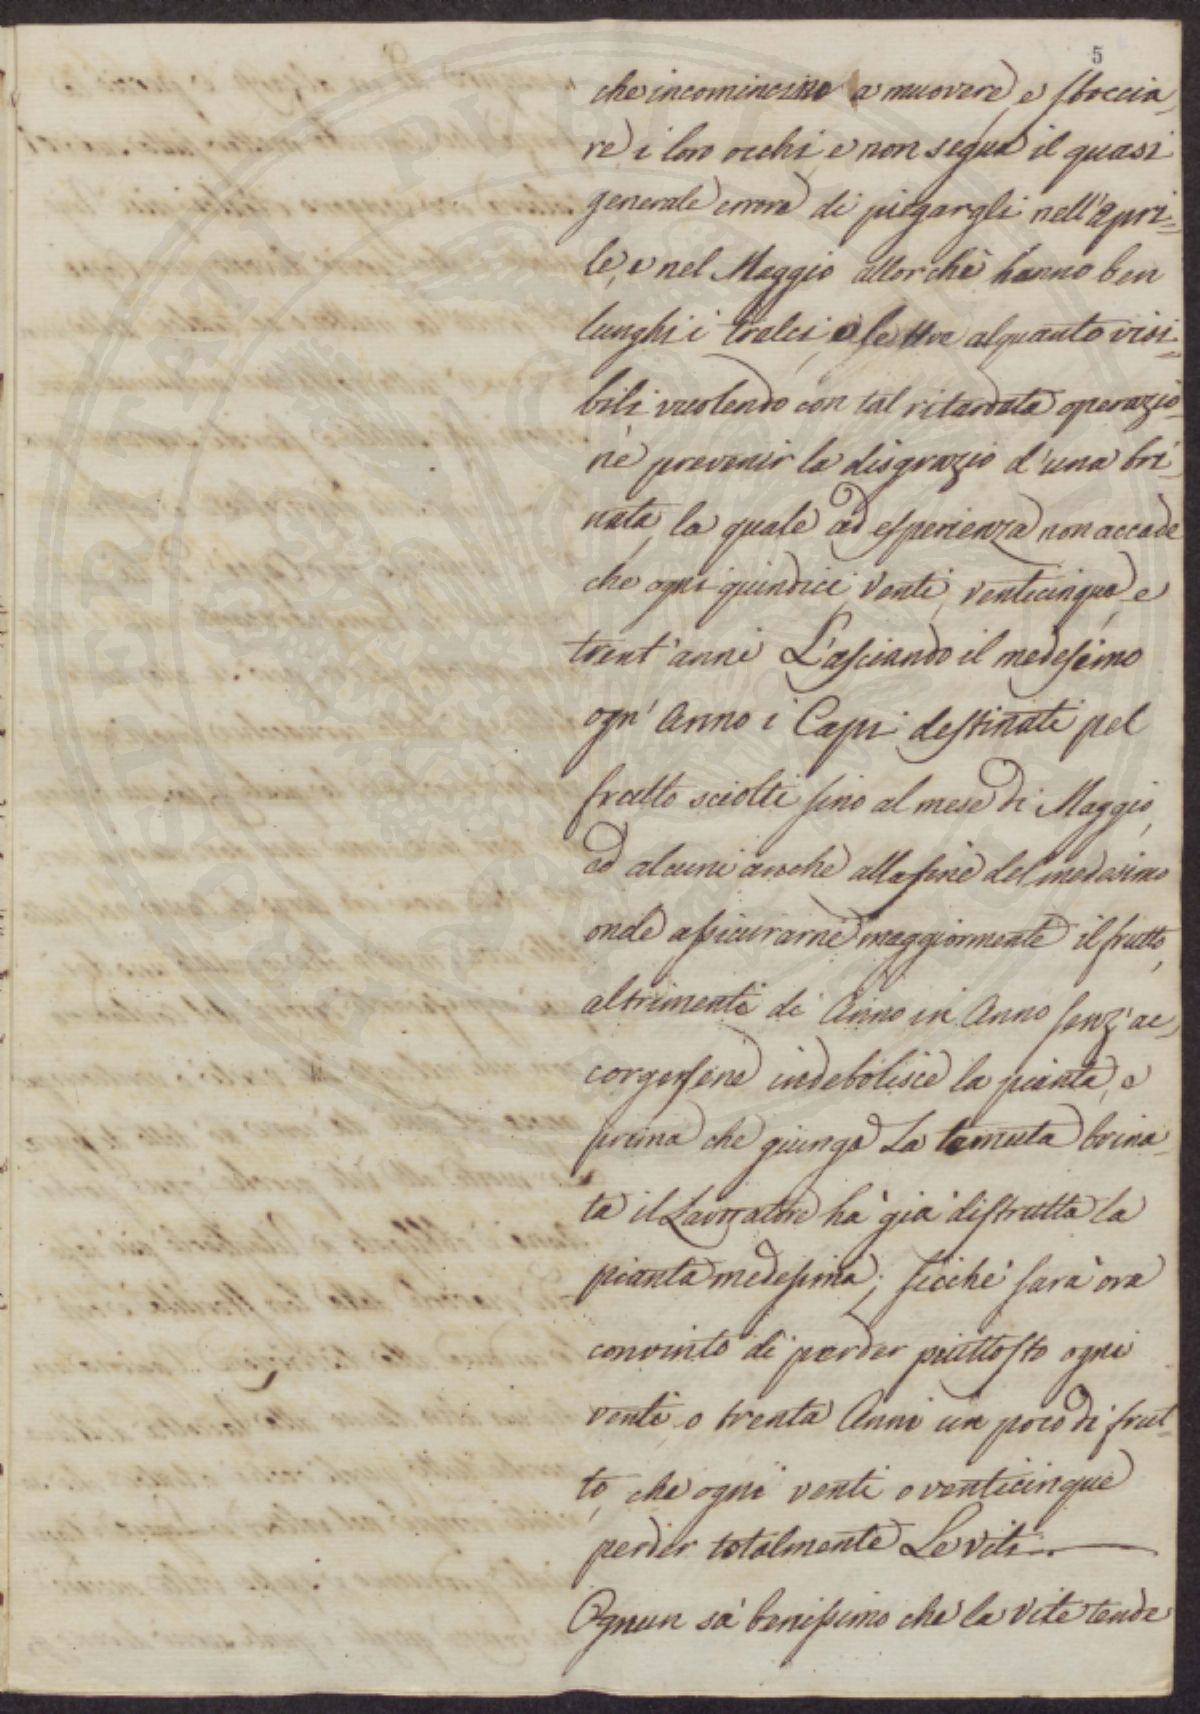 5
che incomincino a muovere, e sboccia,
re i loro occhi, e non segua il quasi
generale errore di piegargli nell'Apri=
le, e nel Maggio allorchè hanno ben
lunghi i tralci, e le Uve alquanto visi=
bili, volendo con tal ritardata operazio=
ne prevenir la disgrazia d'una bri,
nata, la quale ad esperienza non accade
che ogni quindici, Venti, venticinque, e
trent'anni Lasciando il medesimo
ogn'Anno i Capi destinati pel
frutto sciolti fino al mese di Maggio,
ed alcuni anche alla fine del medesimo
onde assicurarne maggiormente il frutto,
altrimenti di Anno in Anno senz'ac,
corgersene indebolisce la pianta, e
prima che giunga La temuta brina,
ta il Lavoratore ha già distrutta la
pianta medesima; sicchè sarà ora
convinto di perder piuttosto ogni
venti, o trenta Anni un poco di frut=
to, che ogni venti o venticinque
perder totalmente Le viti.
Ognun sà benissimo che la Vite tende